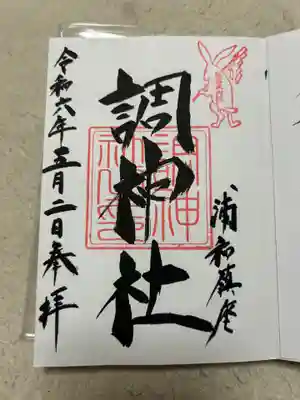 浦和鎮座
調神社
令和六年五月二日奉拝